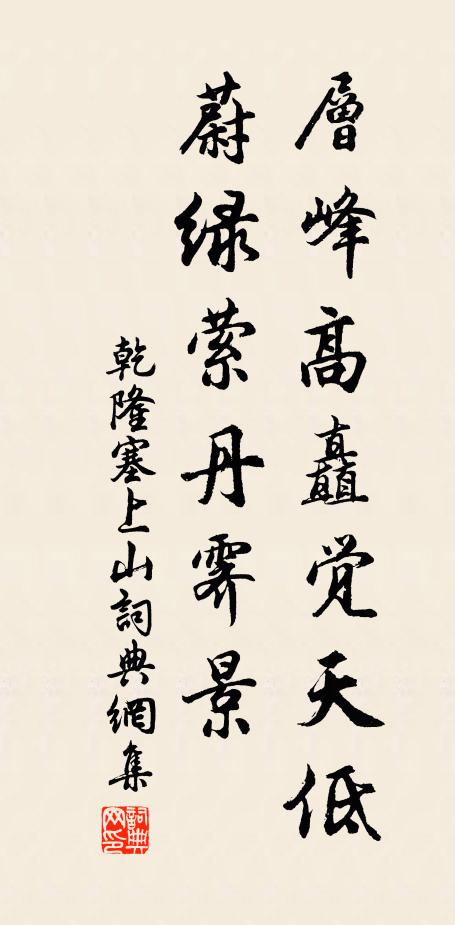 層峰高矗覚天低
蔚緑萦丹霽景
乾隆塞上山詞典網集
詞典网印